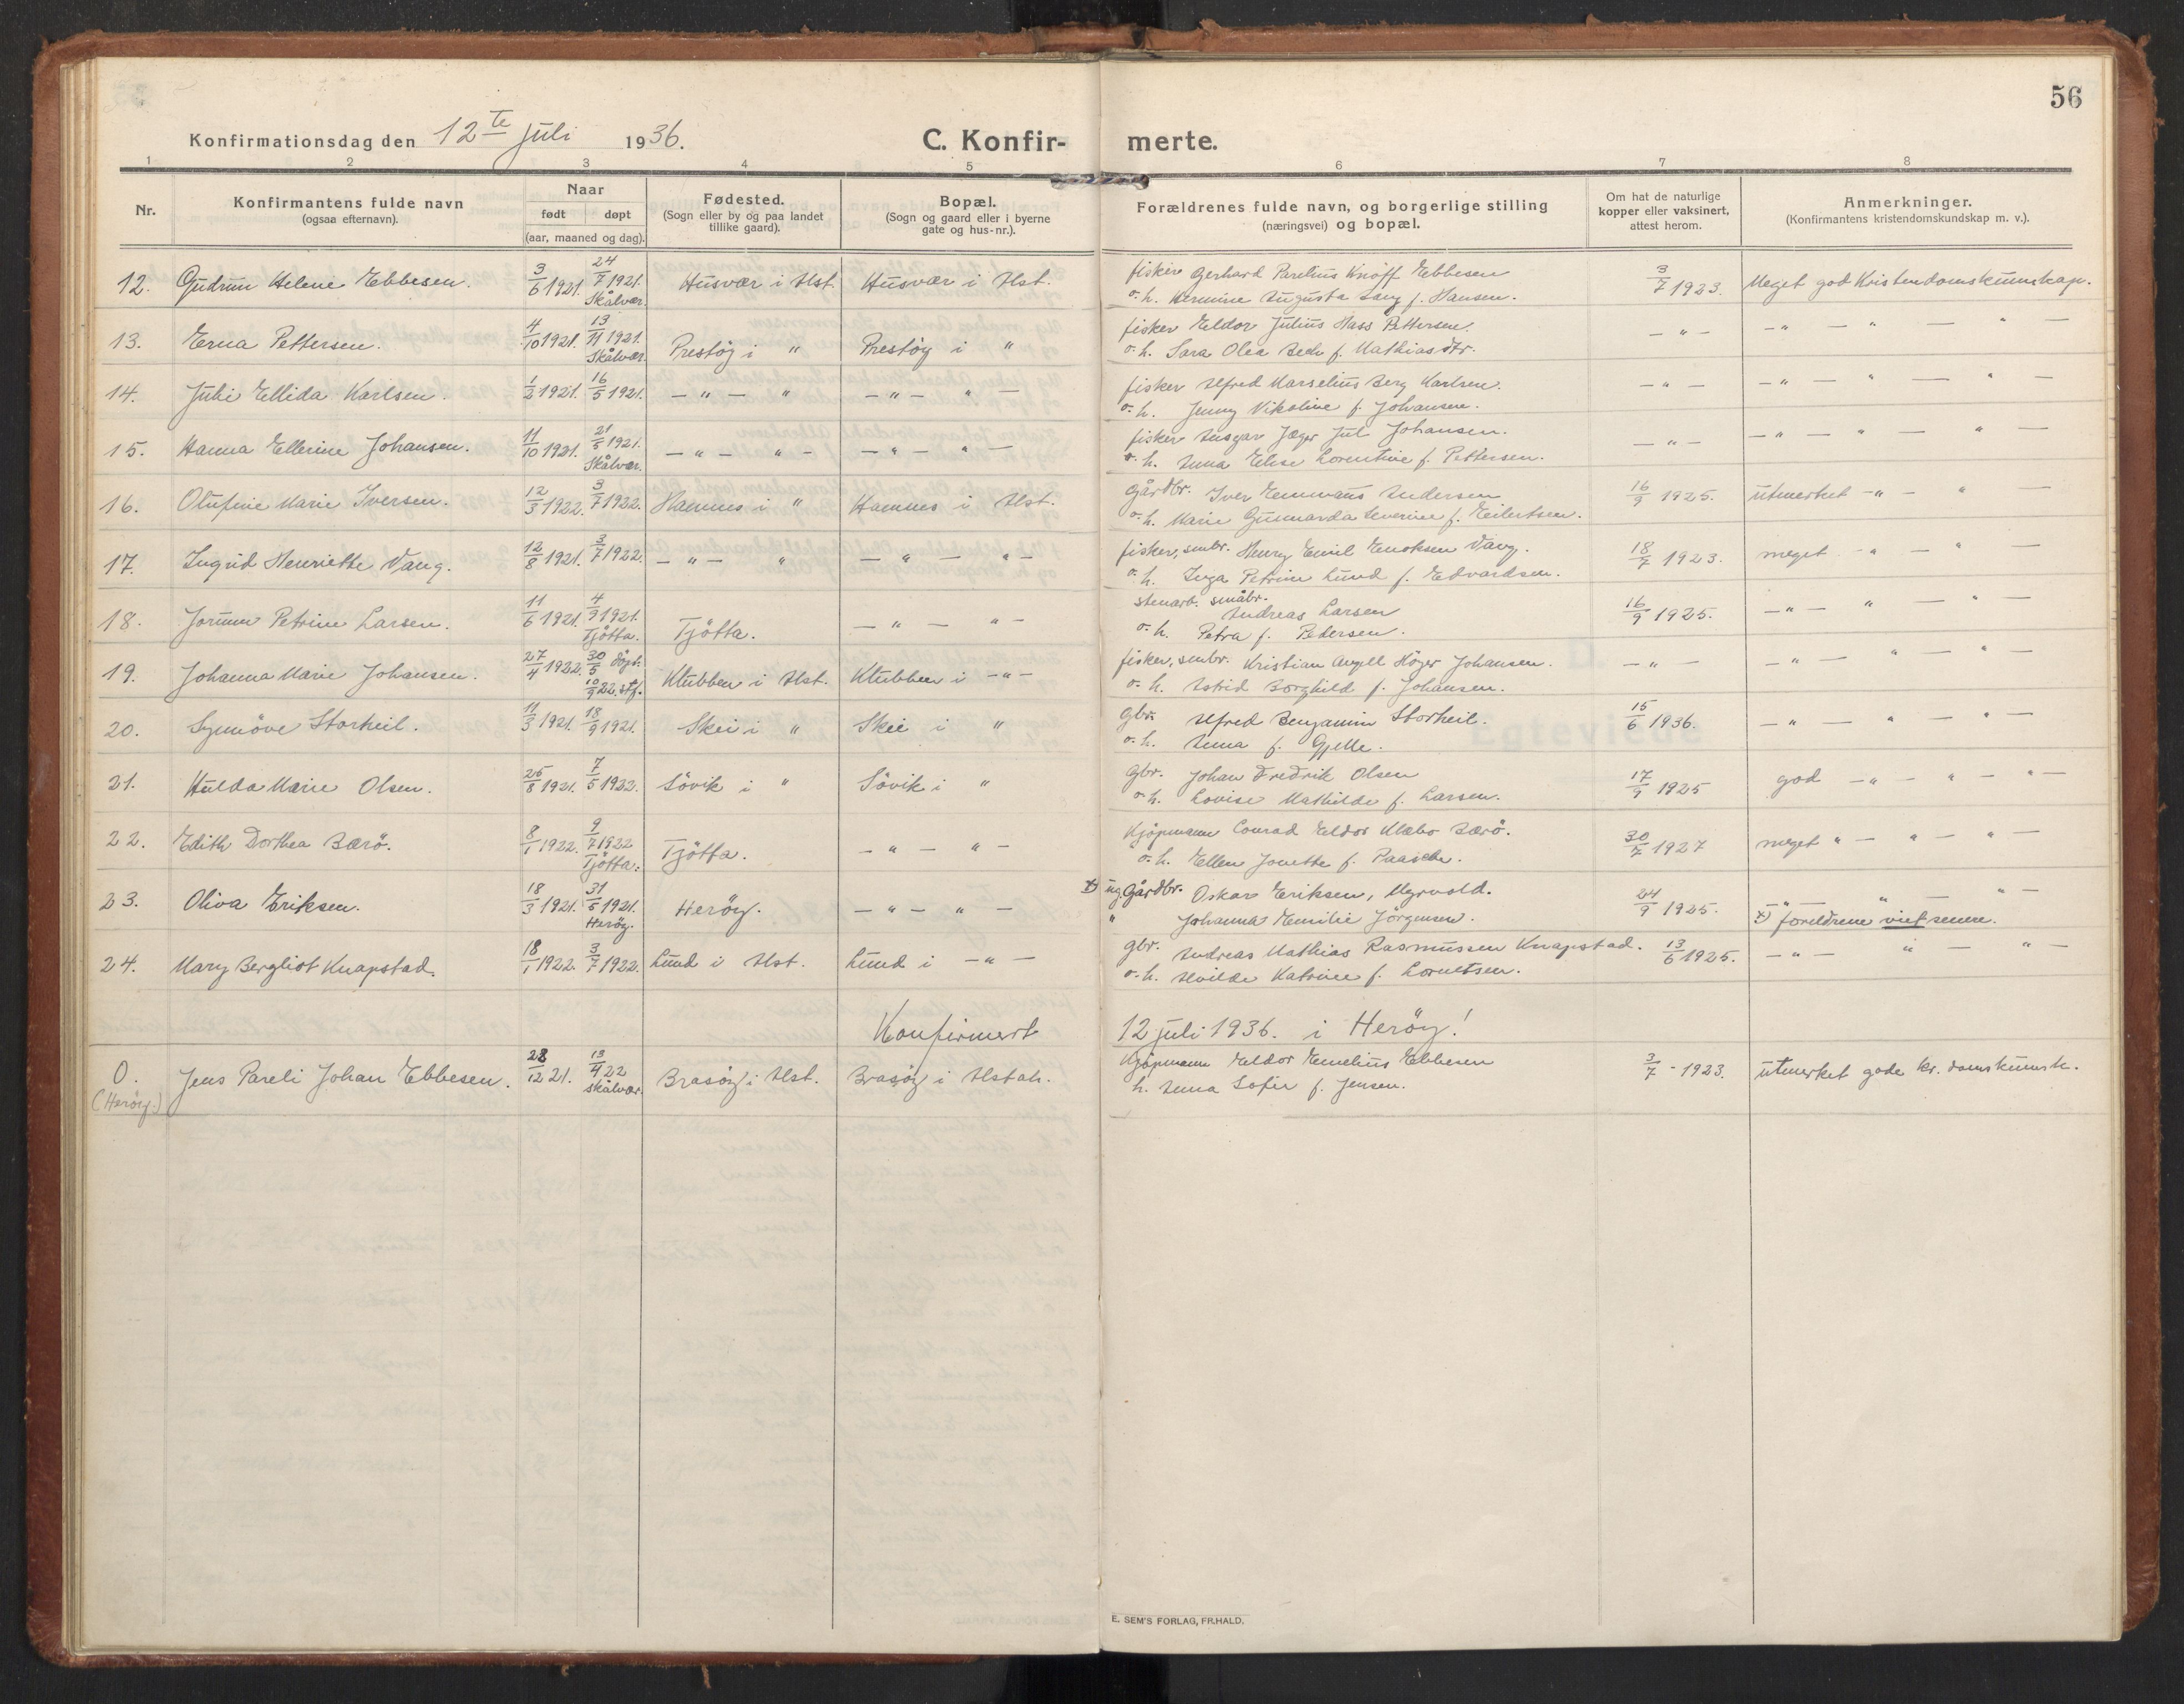 56
Konfirmationsdag den 12te juli 1936.
C. Konfir- merte.
1 2 3 4 5 6 7 8
Nr.
Konfirmantens fulde navn
(ogsaa efternavn).
Naar
født døpt
(aar, maaned og dag).
Fødested.
(Sogn eller by og paa landet
tillike gaard).
Bopæl.
(Sogn og gaard eller i byerne
gate og hus-nr.).
Forældrenes fulde navn, og borgerlige stilling
(næringsvei) og bopæl.
Om hat de naturlige
kopper eller vaksinert,
attest herom.
Anmerkninger.
(Konfirmantens kristendomskundskap m. v.).
12. Gudrun Helene Ebbesen. 3/6 1921. 24/7 1921. Skålvær. Husvær i Alst. Husvær i Alst. fisker Gerhard Parelius Knoff Ebbesen 3/7 1923. Meget god Kristendomskunnskap.
o. h. Hermine Augusta Lang f. Hansen.
13. Erna Pettersen. 4/10 1921. 13/11 1921. Skålvær. Prestöy i " Prestöy i " fisker Eldor Julius Hass Pettersen. — " — — " — " — " —
o. h. Sara Olea Bech f. Mathiasdtr.
14. Juhi Ellida Karlsen. 1/2 1921. 16/5 1921. — " — " — " — " — fisker Alfred Marselius Berg Karlsen. — " — — " — " — " —
o. h. Jenny Nikoline f. Johansen.
15. Hanna Ellerine Johansen. 11/10 1921. 21/5 1921. Skålvær. — " — " — — " — " — fisker Ansgar Jæger Jul Johansen. — " — — " — " — " —
o. h. Anna Elise Lorentine f. Pettersen.
16. Olufine Marie Iversen. 12/3 1922. 3/7 1922. Hamnes i " Hamnes i Alst. Gårdbr. Iver Emmaus Andersen 16/9 1925. utmerket — " — " —
o. h. Marie Gunnarda Severine f. Eilertsen.
17. Ingrid Henriette Vang. 12/8 1921. 3/7 1922. — " — " — " — " — fisker, smbr. Henry Emil Enoksen Vang. 18/7 1923. meget — " — " —
o. h. Inga Petrine Lund f. Edvardsen.
18. Jorunn Petrine Larsen. 11/6 1921. 4/9 1921. Tjötta. Tjötta. — " — " — stenarb. småbr. Andreas Larsen 16/9 1925. — " — " — " —
o. h. Petra f. Pedersen.
19. Johanna Marie Johansen. 27/4 1922. 30/5 döpt. 10/9 22. stf. Klubben i Alst. Klubben i — " — fisker, smbr. Kristian Angell Höger Johansen. — " — — " — " — " —
o. h. Astrid Borghild f. Johansen.
20. Synnöve Storheil. 11/3 1921. 18/9 1921. Skei i " Skei i " Gbr. Alfred Benjamin Storheil. 15/6 1936. — " — " — " —
o. h. Anna f. Gjelle.
21. Hulda Marie Olsen. 25/8 1921. 7/5 1922. Sövik i " Sövik i " Gbr. Johan Fredrik Olsen 17/9 1925 god — " — " — " —
o. h. Lovise Mathilde f. Larsen.
22. Edith Dorthea Bærö. 8/1 1922. 9/7 1922 Tjötta. Tjötta. — " — " — Kjöpmann Conrad Eldor Klæbo Bærö. 30/7 1927 meget " — " — " —
o. h. Ellen Jonette f. Paasche.
23. Oliva Eriksen. 18/3 1921. 31/5 1921. Heröy. Heröy. — " — " — x) ug. Gårdbr. Oskar Eriksen, Myrvold. 24/9 1925. — " — " — " —
" Johanna Emilie Jörgensen. x) foreldrene viet senere.
24. Mary Bergliot Knapstad. 18/1 1922. 3/7 1922. Lund i Alst. Lund i — " — Gbr. Andreas Mathias Rasmussen Knapstad. 13/6 1925. — " — " — " —
o. h. Alvilde Katrine f. Lorentsen.
Konfirmert 12 juli 1936. i Heröy!
0. (Heröy.) Jens Pareli Johan Ebbesen. 28/12 21. 13/4 22 Skålvær. Brasöy i Alst. Brasöy i Alstah. Kjöpmann Eldor Emelius Ebbesen 3/7 - 1923. utmerket gode kr. domskunnsk.
h. Anna Sofie f. Jensen.
E. SEM'S FORLAG, FR.HALD.